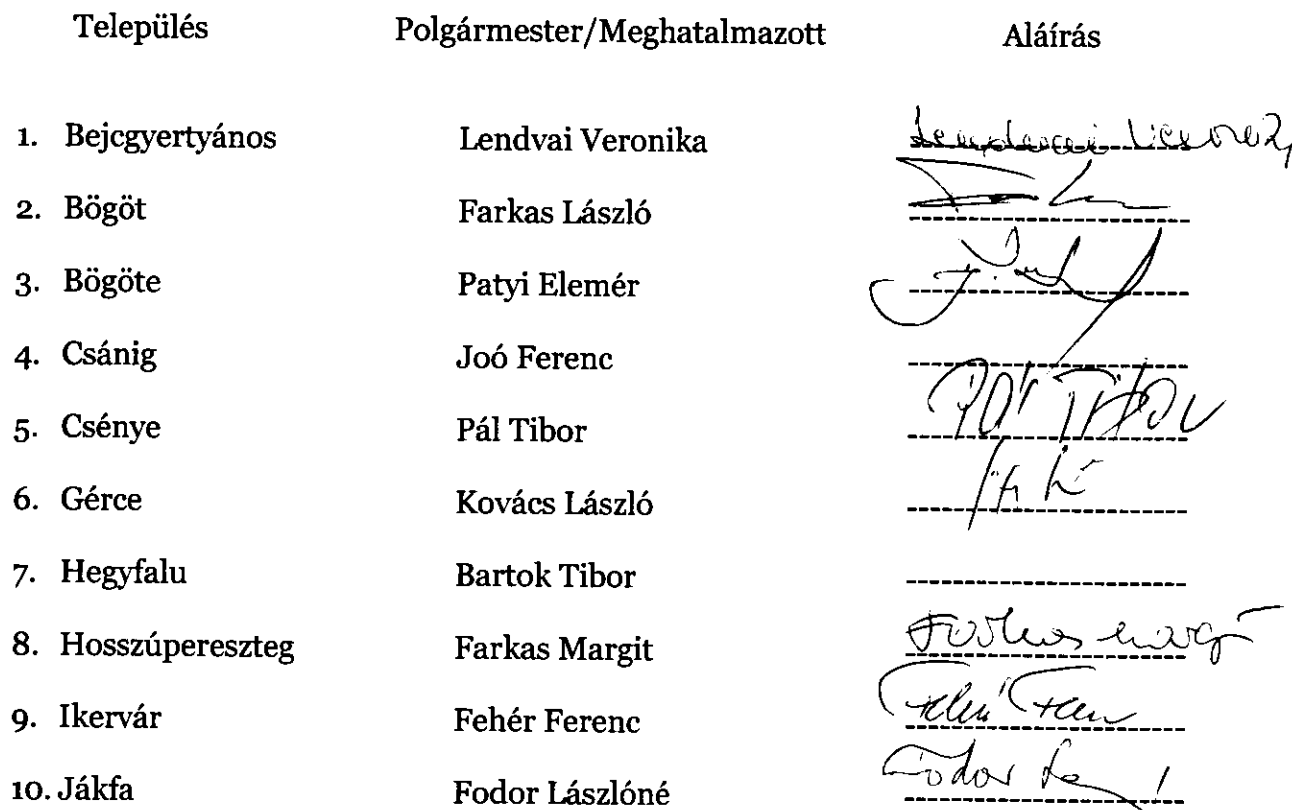 Település Polgármester/Meghatalmazott Aláírás
1. Bejcgyertyános Lendvai Veronika Lendvai
2. Bögöt Farkas László
3. Bögöte Patyi Elemér
4. Csánig Joó Ferenc
5. Csénye Pál Tibor Pál Tibor
6. Gérce Kovács László
7. Hegyfalu Bartok Tibor
8. Hosszúpereszteg Farkas Margit Farkas
9. Ikervár Fehér Ferenc
10. Jákfa Fodor Lászlóné Fodor